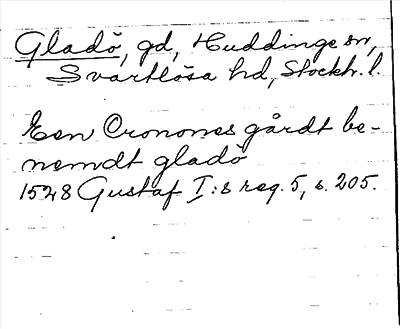 Gladö, gd, Huddinge sn,
Svartlösa hd, Stockh. l.
Een Cronones gårdt be-
nemdt gladö
1528 Gustaf I:s reg. 5, s. 205.